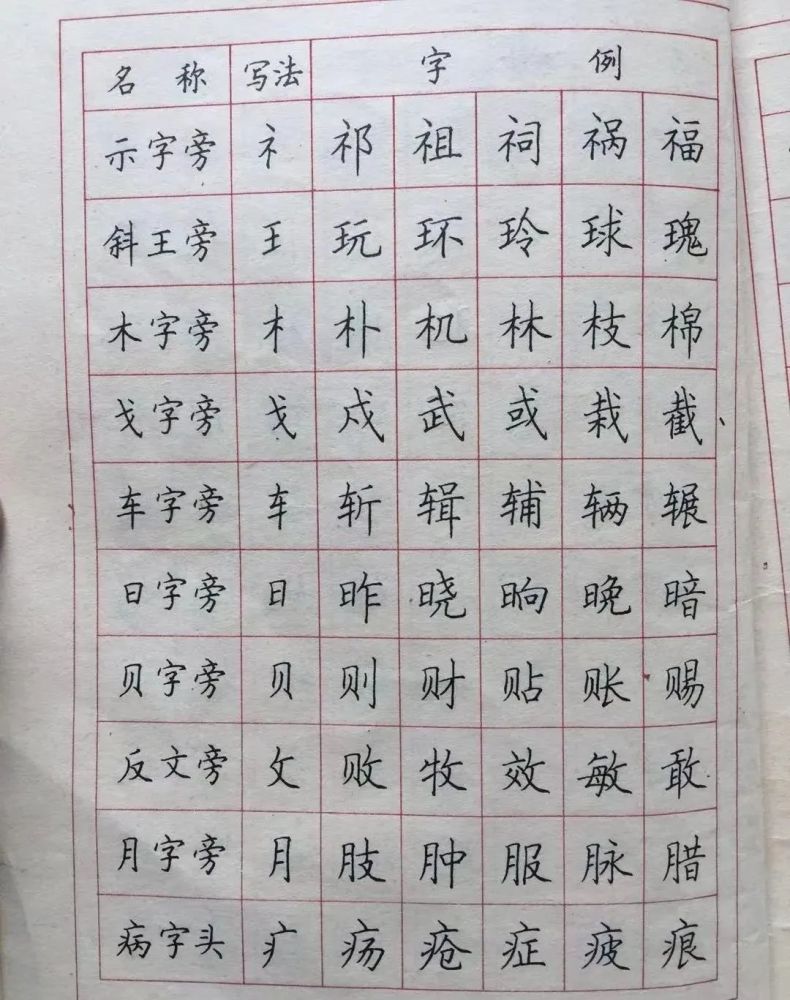 名 称 写法 字 例
示字旁 礻 祁 祖 祠 祸 福
斜王旁 王 玩 环 玲 球 瑰
木字旁 木 朴 机 林 枝 棉
戈字旁 戈 戍 武 或 栽 截
车字旁 车 斩 辑 辅 辆 辗
日字旁 日 昨 晓 晌 晚 暗
贝字旁 贝 则 财 贴 账 赐
反文旁 攵 败 牧 效 敏 敢
月字旁 月 肢 肿 服 脉 腊
病字头 疒 疡 疮 症 疲 痕